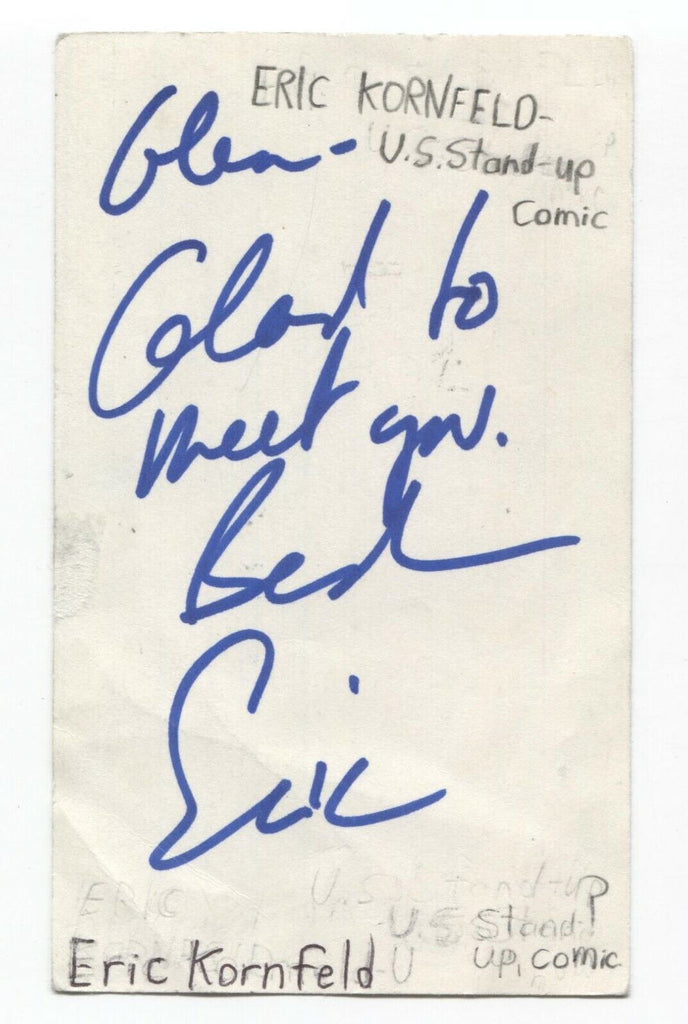 ERIC KORNFELD-
U.S. Stand-up
Comic
Glen-
Glad to
meet you.
Best
Eric
ERIC U.S. Stand-up
U.S. Stand-
Up, Comic
Eric Kornfeld